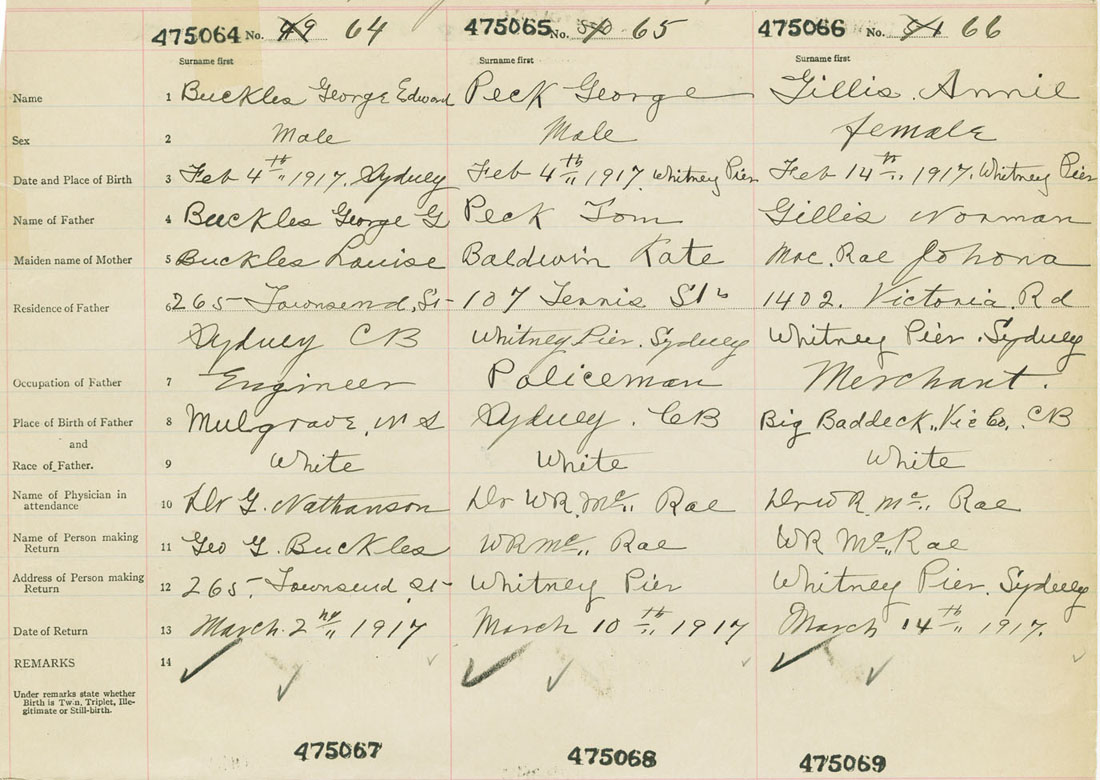 475064 No. 49 64 475065 No. 50 65 475066 No. 51 66
Surname first Surname first Surname first
Name 1 Buckles George Edward Peck George Gillis. Annie
Sex 2 Male Male female
Date and Place of Birth 3 Feb 4th 1917. Sydney Feb 4th 1917. Whitney Pier Feb 14th 1917. Whitney Pier
Name of Father 4 Buckles George G Peck Tom Gillis Norman
Maiden name of Mother 5 Buckles Louise Baldwin Kate Mac. Rae Johona
Residence of Father 6 265 Townsend, St 107 Tennis St 1402. Victoria Rd
Sydney CB Whitney Pier. Sydney Whitney Pier. Sydney
Occupation of Father 7 Engineer Policeman Merchant.
Place of Birth of Father 8 Mulgrave, N S Sydney. CB Big Baddeck,, Vic Co,. CB
and
Race of Father. 9 White White White
Name of Physician in
attendance 10 Dr G. Nathanson Dr WR. Mc,, Rae Dr W R. Mc,, Rae
Name of Person making
Return 11 Geo G. Buckles WR Mc,, Rae WR Mc,, Rae
Address of Person making
Return 12 265, Townsend St Whitney Pier Whitney Pier. Sydney
Date of Return 13 March. 2nd 1917 March 10th 1917 March 14th 1917.
REMARKS 14
Under remarks state whether
Birth is Twin, Triplet, Ille-
gitimate or Still-birth.
475067 475068 475069